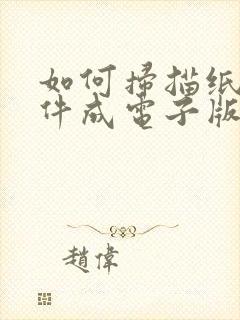 如何掃描纸
件成電子版
趙偉